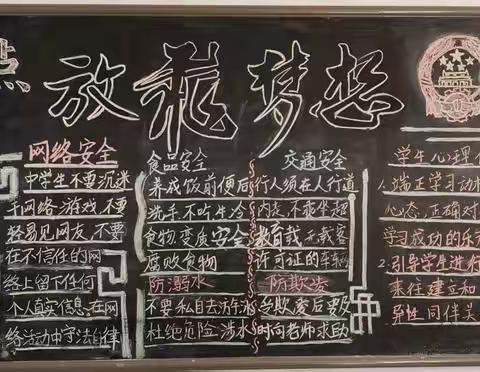 点 放飞梦想
网络安全
中学生不要沉迷
于网络游戏,不要
轻易见网友,不要
在不信任的网
络上留下任何
个人真实信息,在网
络活动中守法自律
食品安全
养成饮前便后
洗手不吃生冷
食物,变质安全
腐败食物
防溺水
不要私自去游泳
杜绝危险涉水
交通安全
行人须在人行道
内走,不乘坐超
载,无载客
许可证的车辆
防欺凌
受欺凌后要及
时向老师求助
学生心理
1.端正学习动
心态,正确对
学习成功的乐
2.引导学生进行
来往建立和
异性同伴关